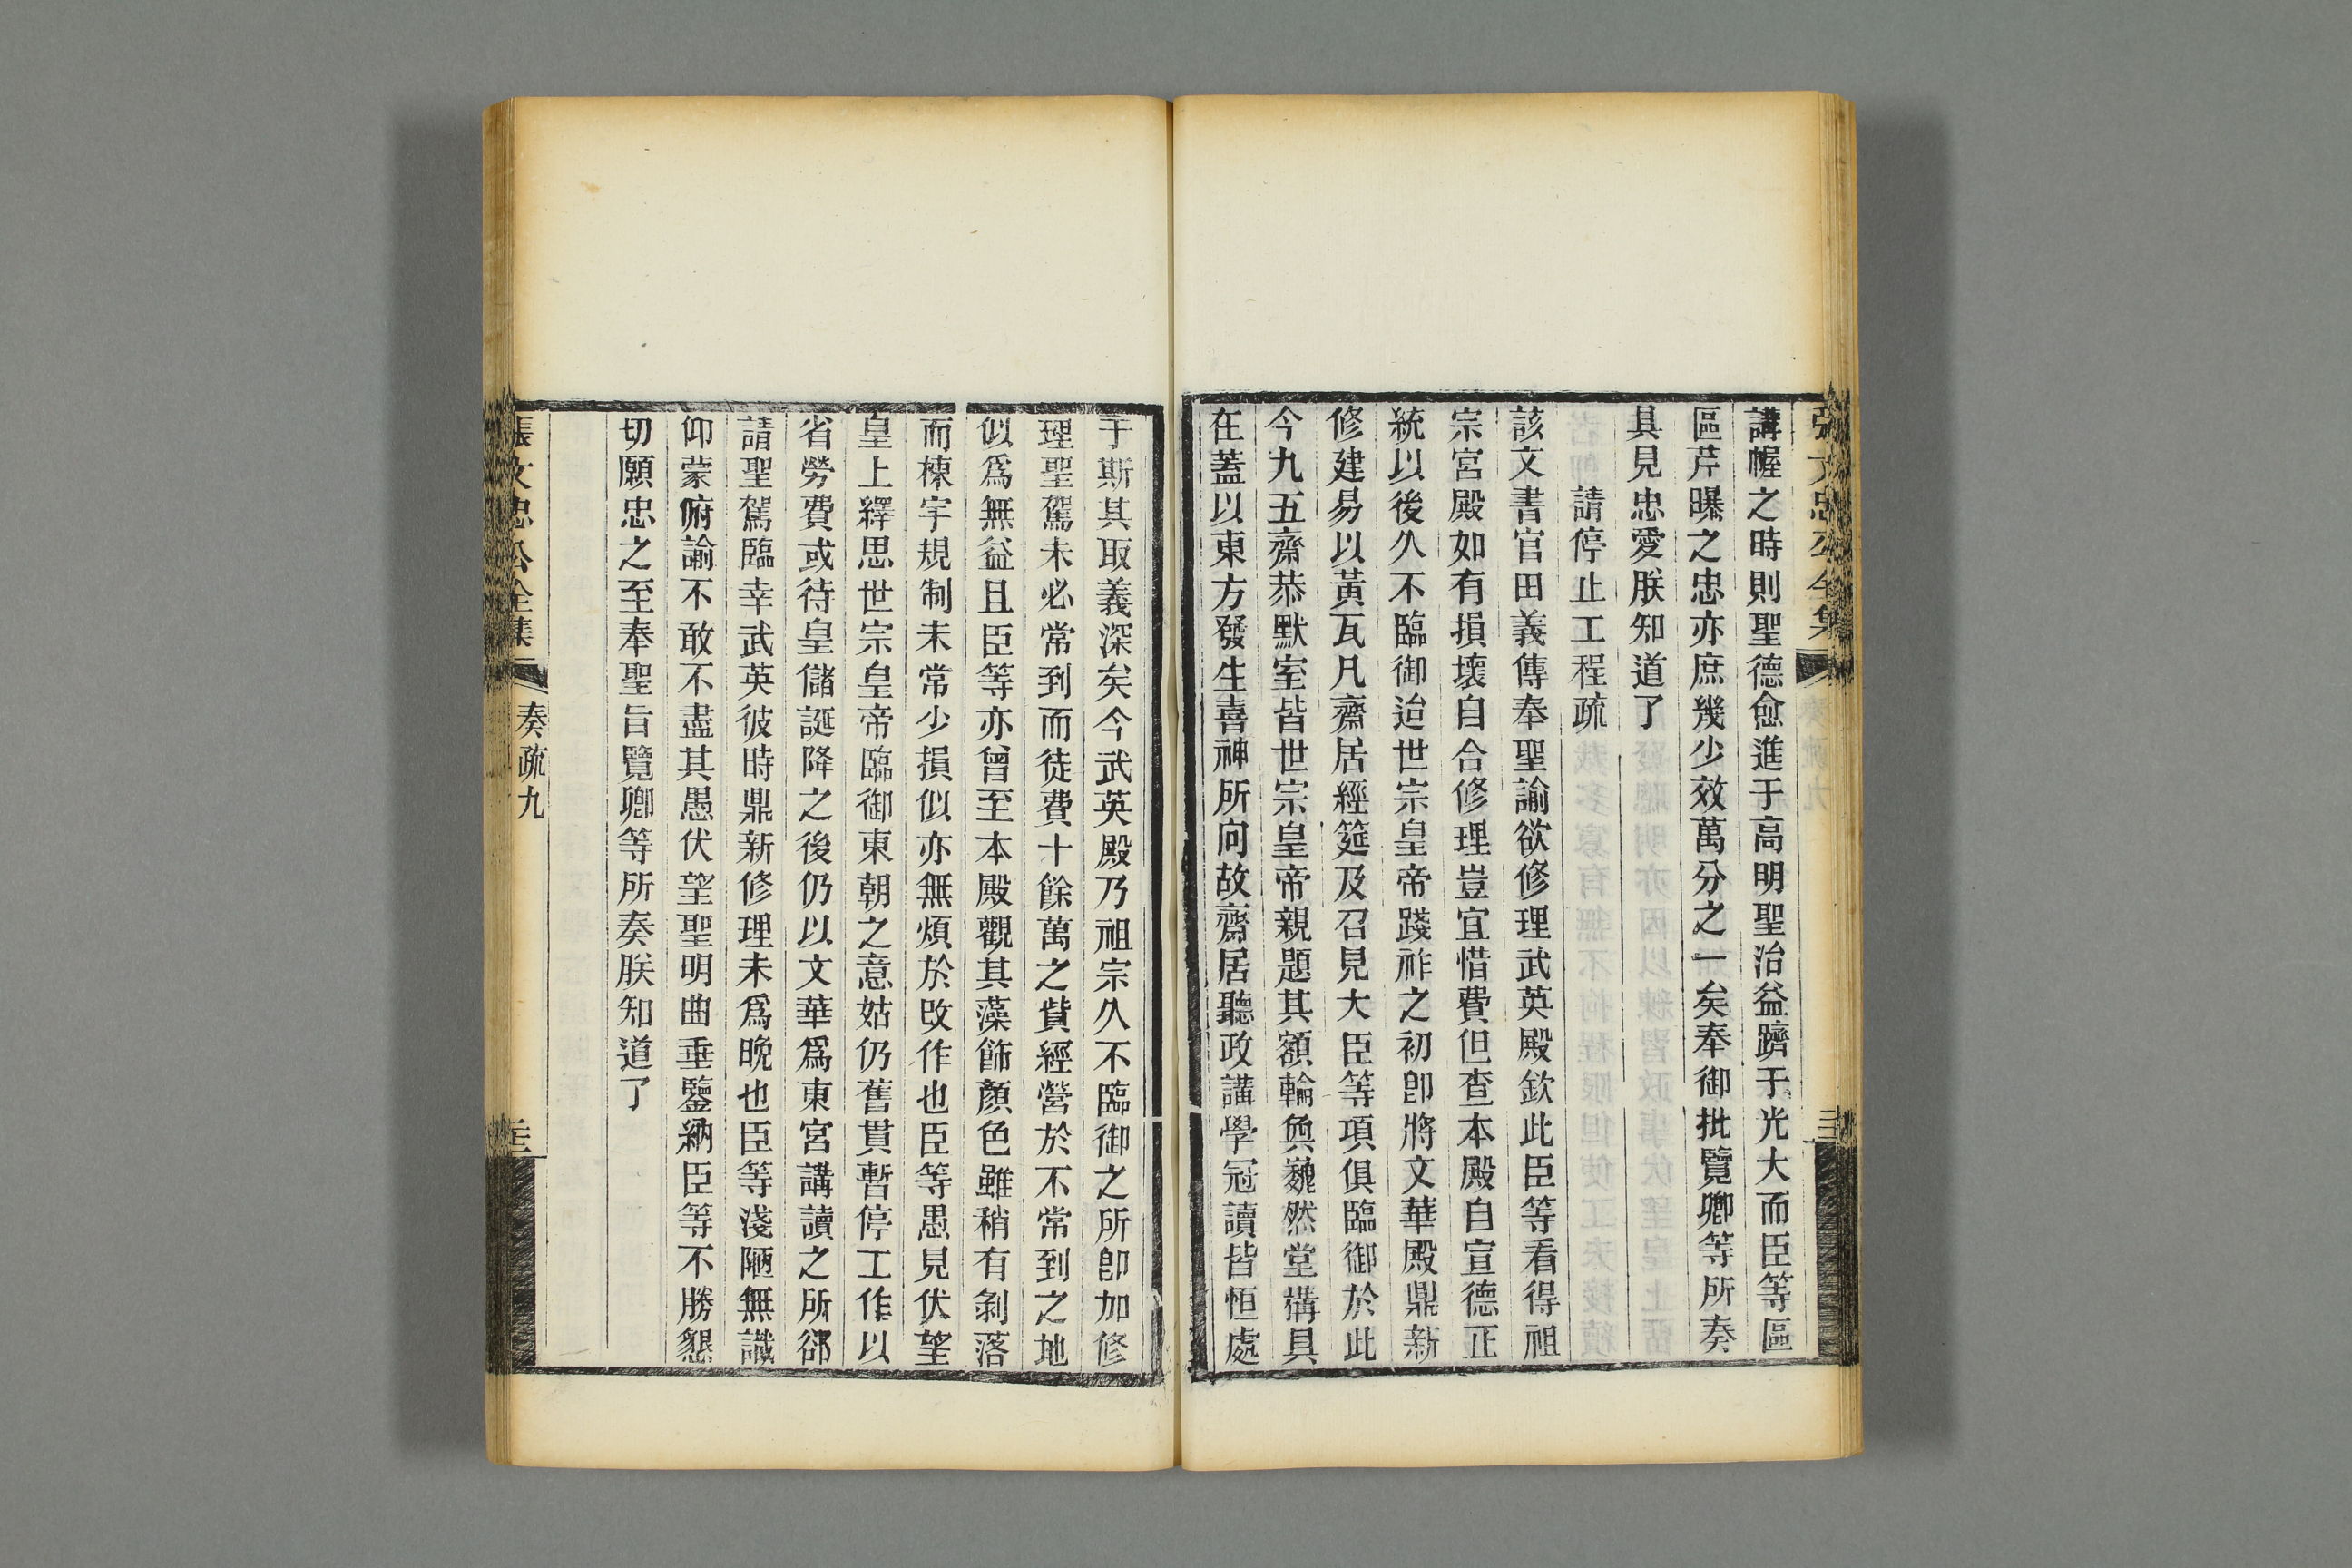 講幄之時則聖德愈進于高明聖治益躋于光大而臣等區
區芹曝之忠亦庶幾少效萬分之一矣奉御批覽卿等所奏
具見忠愛朕知道了
請停止工程疏
該文書官田義傳奉聖諭欲修理武英殿欽此臣等看得祖
宗宮殿如有損壞自合修理豈宜惜費但查本殿自宣德正
統以後久不臨御迨世宗皇帝踐祚之初卽將文華殿鼎新
修建易以黃瓦凡齋居經筵及召見大臣等項俱臨御於此
今九五齋恭默室皆世宗皇帝親題其額輪奐巍然堂構具
在蓋以東方發生喜神所向故齋居聽政講學冠讀皆恒處
于斯其取義深矣今武英殿乃祖宗久不臨御之所卽加修
理聖駕未必常到而徒費十餘萬之貲經營於不常到之地
似爲無益且臣等亦曾至本殿觀其藻飾顏色雖稍有剝落
而棟宇規制未常少損似亦無煩於改作也臣等愚見伏望
皇上繹思世宗皇帝臨御東朝之意姑仍舊貫暫停工作以
省勞費或待皇儲誕降之後仍以文華爲東宮講讀之所郤
請聖駕臨幸武英彼時鼎新修理未爲晚也臣等淺陋無識
仰蒙俯諭不敢不盡其愚伏望聖明曲垂鑒納臣等不勝懇
切願忠之至奉聖旨覽卿等所奏朕知道了
張文忠公全集 奏疏九